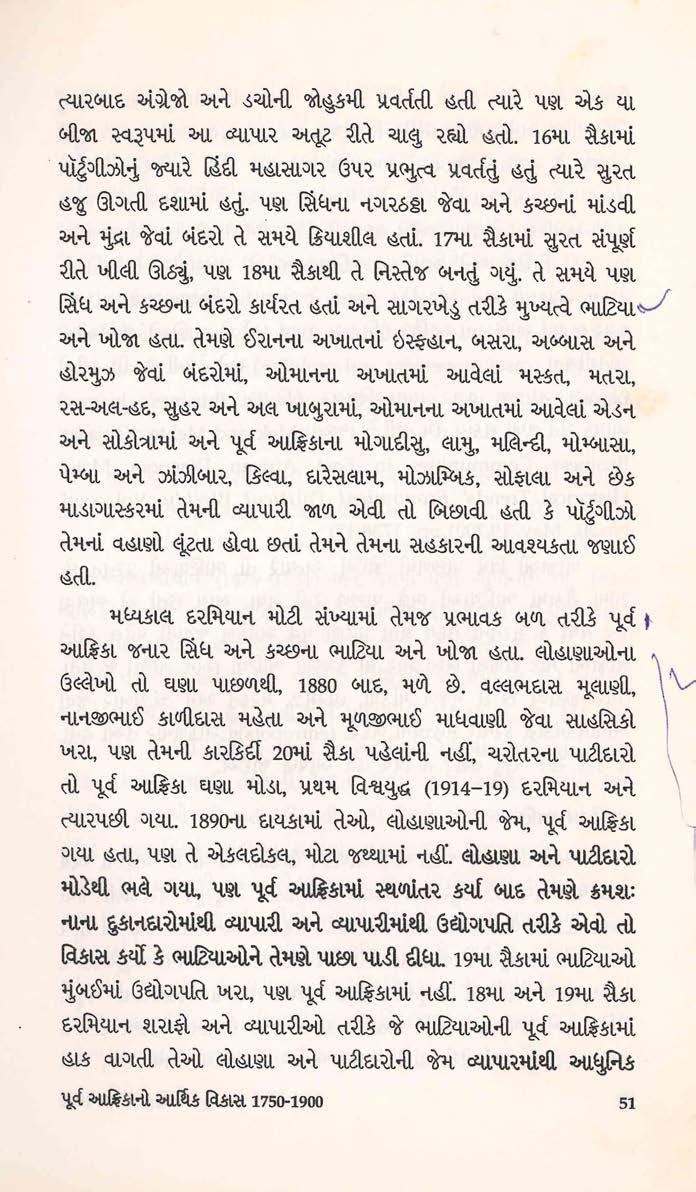 ત્યારબાદ અંગ્રેજો અને ડચોની જોહુકમી પ્રવર્તતી હતી ત્યારે પણ એક યા
બીજા સ્વરૂપમાં આ વ્યાપાર અતૂટ રીતે ચાલુ રહ્યો હતો. 16મા સૈકામાં
પૉર્ટુગીઝોનું જ્યારે હિંદી મહાસાગર ઉપર પ્રભુત્વ પ્રવર્તતું હતું ત્યારે સુરત
હજુ ઊગતી દશામાં હતું. પણ સિંધના નગરઠઠ્ઠા જેવા અને કચ્છનાં માંડવી
અને મુંદ્રા જેવાં બંદરો તે સમયે ક્રિયાશીલ હતાં. 17મા સૈકામાં સુરત સંપૂર્ણ
રીતે ખીલી ઊઠ્યું, પણ 18મા સૈકાથી તે નિસ્તેજ બનતું ગયું. તે સમયે પણ
સિંધ અને કચ્છના બંદરો કાર્યરત હતાં અને સાગરખેડુ તરીકે મુખ્યત્વે ભાટિયા
અને ખોજા હતા. તેમણે ઈરાનના અખાતનાં ઇસ્ફહાન, બસરા, અબ્બાસ અને
હોરમુઝ જેવાં બંદરોમાં, ઓમાનના અખાતમાં આવેલાં મસ્કત, મતરા,
રસ-અલ-હદ, સુહર અને અલ ખાબુરામાં, ઓમાનના અખાતમાં આવેલાં એડન
અને સોકોત્રામાં અને પૂર્વ આફ્રિકાના મોગાદીસુ, લામુ, મલિન્દી, મોમ્બાસા,
પેમ્બા અને ઝાંઝીબાર, કિલ્વા, દારેસલામ, મોઝામ્બિક, સોફાલા અને છેક
માડાગાસ્કરમાં તેમની વ્યાપારી જાળ એવી તો બિછાવી હતી કે પૉર્ટુગીઝો
તેમનાં વહાણો લૂંટતા હોવા છતાં તેમને તેમના સહકારની આવશ્યકતા જણાઈ
હતી.
મધ્યકાલ દરમિયાન મોટી સંખ્યામાં તેમજ પ્રભાવક બળ તરીકે પૂર્વ
આફ્રિકા જનાર સિંધ અને કચ્છના ભાટિયા અને ખોજા હતા. લોહાણાઓના
ઉલ્લેખો તો ઘણા પાછળથી, 1880 બાદ, મળે છે. વલ્લભદાસ મૂલાણી,
નાનજીભાઈ કાળીદાસ મહેતા અને મૂળજીભાઈ માધવાણી જેવા સાહસિકો
ખરા, પણ તેમની કારકિર્દી 20માં સૈકા પહેલાંની નહીં, ચરોતરના પાટીદારો
તો પૂર્વ આફ્રિકા ઘણા મોડા, પ્રથમ વિશ્વયુદ્ધ (1914–19) દરમિયાન અને
ત્યારપછી ગયા. 1890ના દાયકામાં તેઓ, લોહાણાઓની જેમ, પૂર્વ આફ્રિકા
ગયા હતા, પણ તે એકલદોકલ, મોટા જથ્થામાં નહીં. લોહાણા અને પાટીદારો
મોડેથી ભલે ગયા, પણ પૂર્વ આફ્રિકામાં સ્થળાંતર કર્યા બાદ તેમણે ક્રમશઃ
નાના દુકાનદારોમાંથી વ્યાપારી અને વ્યાપારીમાંથી ઉદ્યોગપતિ તરીકે એવો તો
વિકાસ કર્યો કે ભાટિયાઓને તેમણે પાછા પાડી દીધા. 19મા સૈકામાં ભાટિયાઓ
મુંબઈમાં ઉદ્યોગપતિ ખરા, પણ પૂર્વ આફ્રિકામાં નહીં. 18મા અને 19મા સૈકા
દરમિયાન શરાફો અને વ્યાપારીઓ તરીકે જે ભાટિયાઓની પૂર્વ આફ્રિકામાં
હાક વાગતી તેઓ લોહાણા અને પાટીદારોની જેમ વ્યાપારમાંથી આધુનિક
પૂર્વ આફ્રિકાનો આર્થિક વિકાસ 1750-1900 51